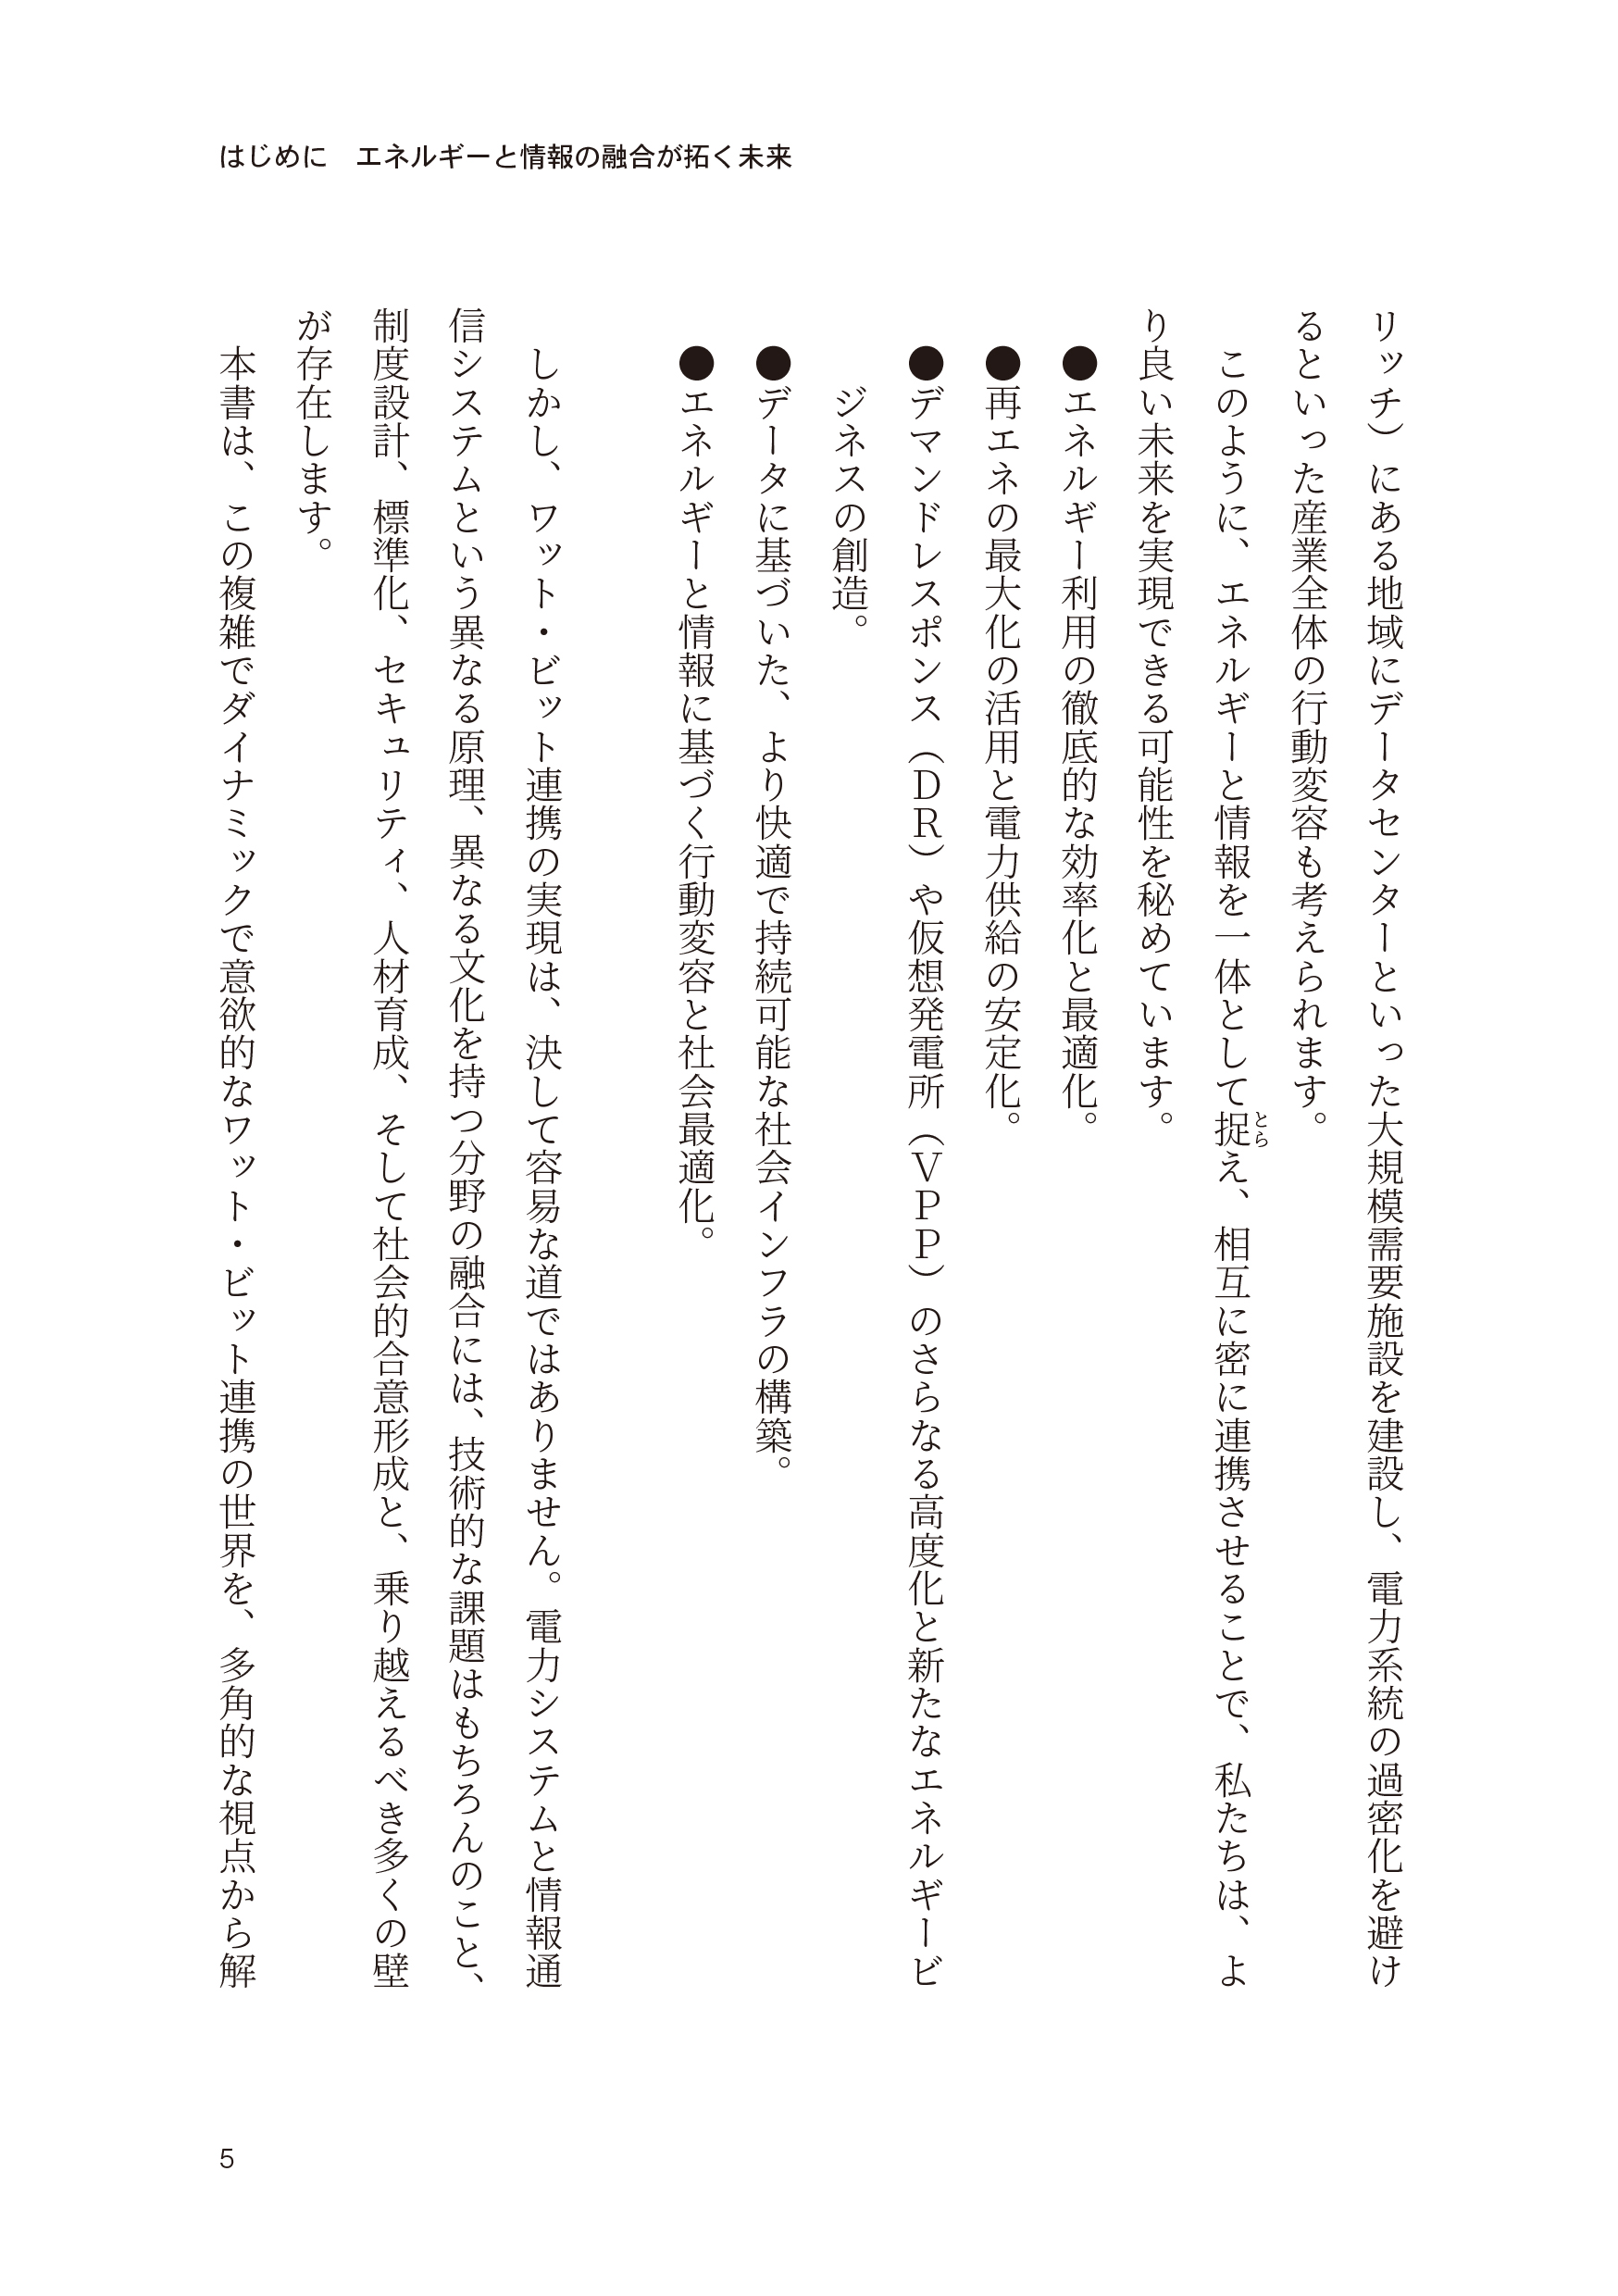 はじめに　エネルギーと情報の融合が拓く未来
リッチ）にある地域にデータセンターといった大規模需要施設を建設し、電力系統の過密化を避け
るといった産業全体の行動変容も考えられます。
　このように、エネルギーと情報を一体として捉え、相互に密に連携させることで、私たちは、よ
とら
り良い未来を実現できる可能性を秘めています。
●エネルギー利用の徹底的な効率化と最適化。
●再エネの最大化の活用と電力供給の安定化。
●デマンドレスポンス（ＤＲ）や仮想発電所（ＶＰＰ）のさらなる高度化と新たなエネルギービ
ジネスの創造。
●データに基づいた、より快適で持続可能な社会インフラの構築。
●エネルギーと情報に基づく行動変容と社会最適化。
　しかし、ワット・ビット連携の実現は、決して容易な道ではありません。電力システムと情報通
信システムという異なる原理、異なる文化を持つ分野の融合には、技術的な課題はもちろんのこと、
制度設計、標準化、セキュリティ、人材育成、そして社会的合意形成と、乗り越えるべき多くの壁
が存在します。
　本書は、この複雑でダイナミックで意欲的なワット・ビット連携の世界を、多角的な視点から解
5